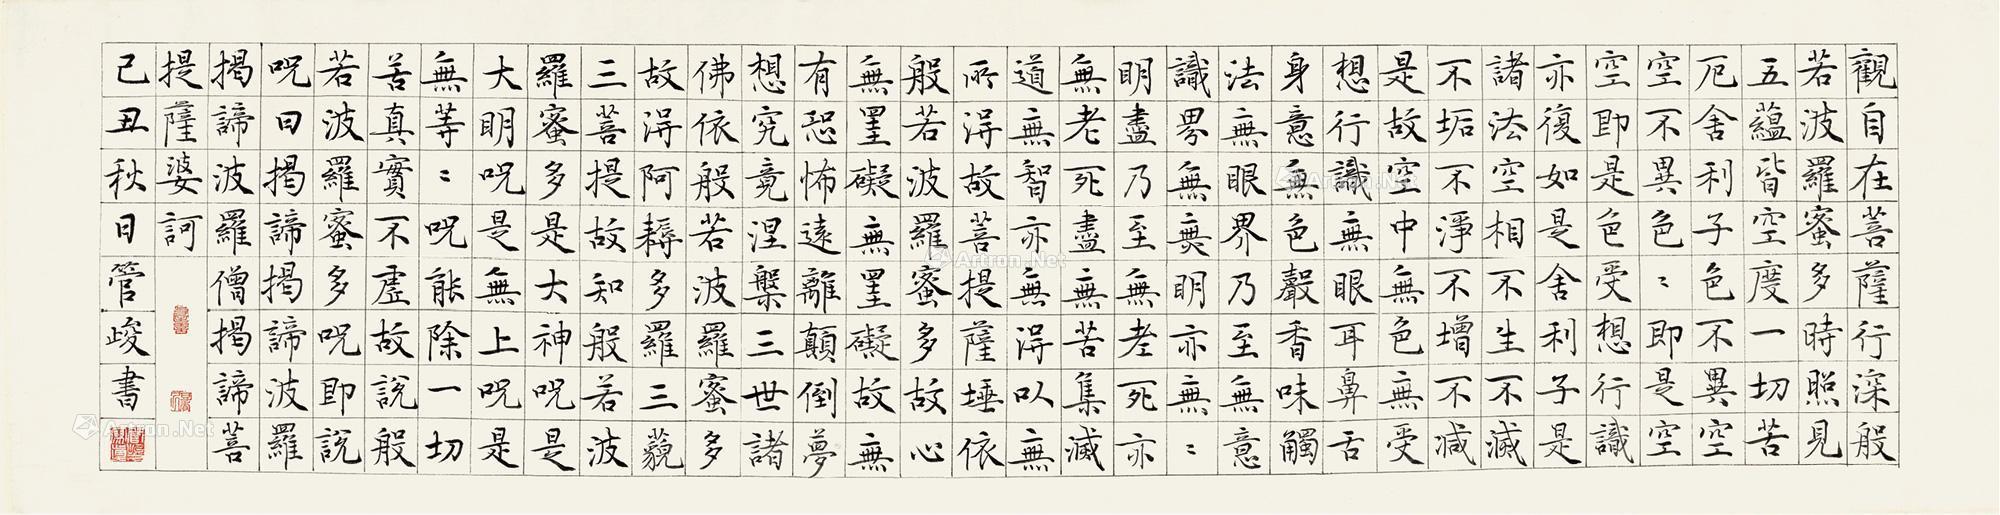 觀自在菩薩行深般
若波羅蜜多時照見
五蘊皆空度一切苦
厄舍利子色不異空
空不異色〻即是空
空即是色受想行識
亦復如是舍利子是
諸法空相不生不滅
不垢不淨不增不減
是故空中無色無受
想行識無眼耳鼻舌
身意無色聲香味觸
法無眼界乃至無意
識界無無明亦無〻
明盡乃至無老死亦
無老死盡無苦集滅
道無智亦無得以無
所得故菩提薩埵依
般若波羅蜜多故心
無罣礙無罣礙故無
有恐怖遠離顛倒夢
想究竟涅槃三世諸
佛依般若波羅蜜多
故得阿耨多羅三藐
三菩提故知般若波
羅蜜多是大神呪是
大明呪是無上呪是
無等〻呪能除一切
苦真實不虛故說般
若波羅蜜多呪即說
呪曰揭諦揭諦波羅
揭諦波羅僧揭諦菩
提薩婆訶
己丑秋日管峻書
Artron.Net
Artron.Net
Artron.Net